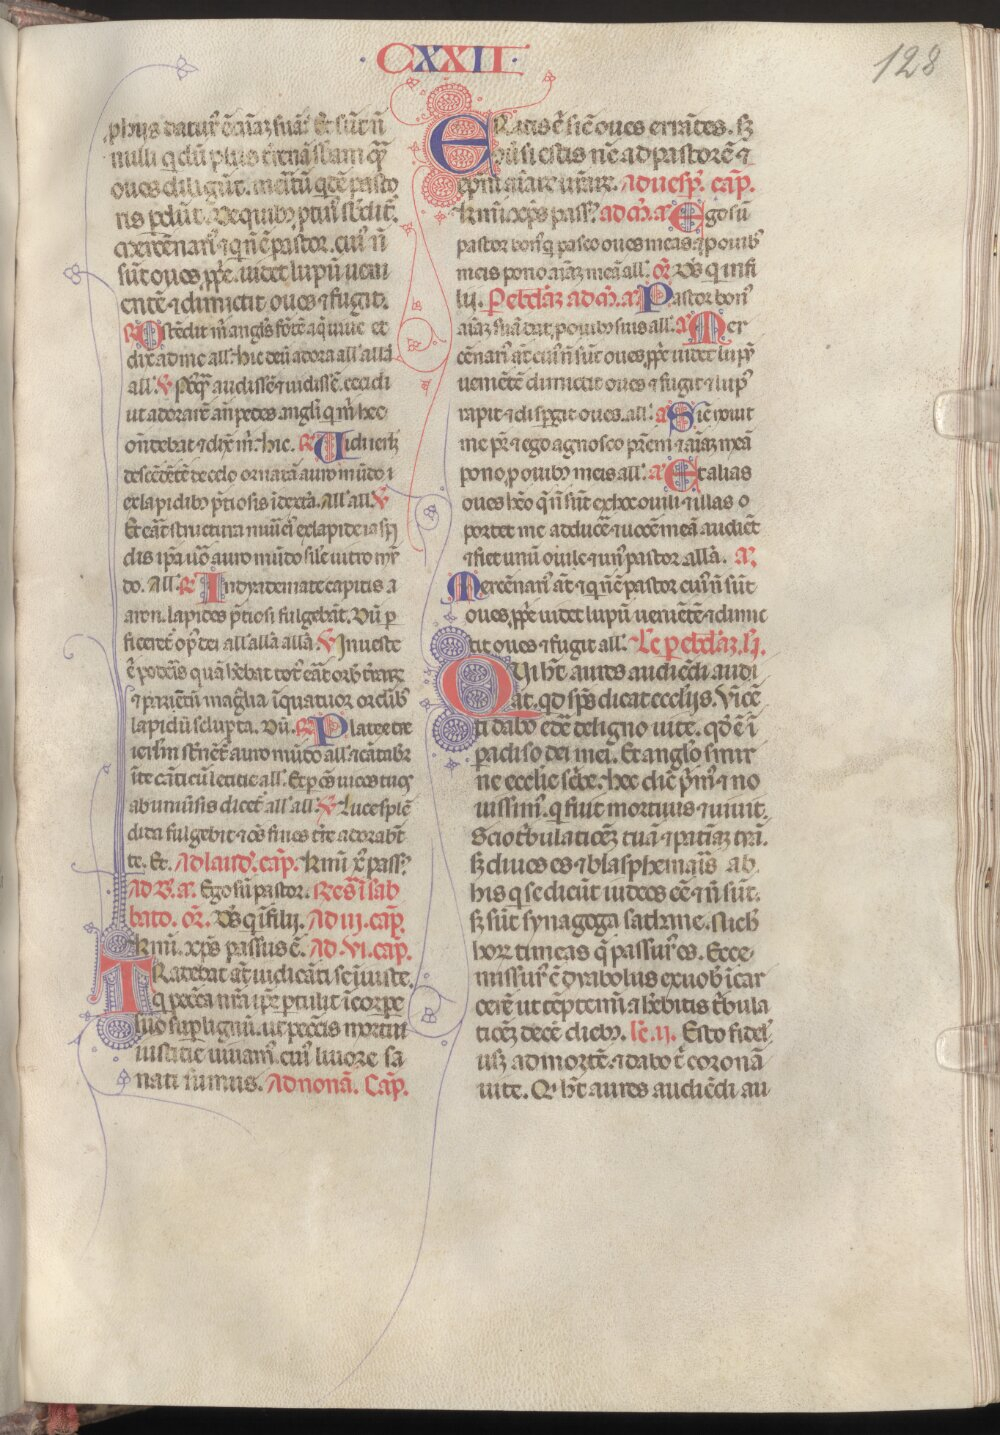 ·CXXII·
128
phijs datur̄ ēaīaʒ suā. Et sūt nōnulli q̇ dū plus t̄renā sb̄am q̄ꝫ
oues diligūt. meritū q̇dē pasto
ris ꝑdūt. De quibꝫ ꝓtin᷒ sb̄dit᷑.
Mercēnari᷒ ⁊ q̇ nō ē pastor. cui᷒ nō
sūt oues, ꝓp̄e. uidet lupū ueni
entē ⁊ dimictit oues ⁊ fugit.
℟ Ostēdit m̄ angl̄s fōtē aq̄ uiue et
dix̄ ad me all̄. hic deū adora all̄ all̄a
all̄. ℣ Postq̄ꝫ audissē ⁊ uidissē. cecidi
ut adorarē añ pedes angl̄i q̇ m̄ hec
oñdebat ⁊ dix̄ m̄. hic. ℟ Uidi ierl̄m
descēdētē de celo ornatā auro mūdo ⁊
ex lapidibꝫ p̄tiosis ītexta. All̄ all̄. ℣
Et erat structura muri ei᷒ ex lapide iasp̄
dis ip̄a uo auro mūdo sil̄e uitro mū
do. All̄. ℟ In dyademate capitis a
aron. lapides p̄tiosi fulgebāt. Dū ꝑ
ficeret᷑ op᷒ dei all̄ all̄a all̄a. ℣ In ueste
ē poderis quā h̄ebat tot᷒ erat orb᷒ t̄raꝝ
⁊ parentū magnia ī quatuor ordibꝫ
lapidū sculpta. Dū. ℟ Platee tue
ierl̄m st̄nēt᷑ auro mūdo all̄. ⁊ cātabit᷑
ī te cāticū letitie all̄. Et ꝑ oēs uicos tuos
ab uniūsis dicet᷑ all̄ all̄. ℣ Luce splē
dida fulgebis ⁊ oēs fines t̄re adorabt̄
te. Et. Ad laud᷒. cap̄. Kmi. xp̄. pass᷒.
Ad B̄. a᷒. Ego sū pastor. Res᷒ ī sab
bato. or̄. D̄s q̇ ī filij. Ad iij. cap̄.
Kmi. xp̄s passus ē. Ad. vi. cap̄.
TRadebat at̄ iudicāti se iniuste.
q̇ pecc̄a nr̄a ip̄e ꝑtulit ī corpe
suo suꝑ lignū. ut pecc̄is mortui
iustitie uiuam᷒. cui᷒ liuore sa
nati sumus. Ad nonā. Cap̄.
ERatis ē sic̄ oues errātes. sꝫ
cōuersi estis nc̄ ad pastorē ⁊
ep̄m aīaꝝ ur̄aꝝ. Ad uesp̄. cap̄.
Kmi. xp̄s pass᷒. ad m̄. a᷒ Ego sū
pastor bon᷒ q̇ pasco oues meas ⁊ ꝓ ouibꝫ
meis pono aīaʒ meā all̄. or̄. D̄s q̇ in fi
lij. Per ebd̄am ad m̄. a᷒ Pastor bon᷒
aīaʒ suā dat, ꝓ ouibꝫ suis all̄. a᷒ Mer
cēnari᷒ at̄ cui᷒ nō sūt oues, ꝓp̄e uidet lupū
uenētē dimictit oues ⁊ fugit ⁊ lup᷒
rapit ⁊ disꝑgit oues. all̄. a᷒ Sic̄ nouit
me pr̄ ⁊ ego agnosco pr̄em ⁊ aīaʒ meā
pono, ꝓ ouibꝫ meis all̄. a᷒ Et alias
oues h̄eo q̄ nō sūt ex hoc ouili ⁊ illas o
portet me adducē ⁊ uocē meā audiēt
⁊ fiet unū ouile ⁊ un᷒ pastor all̄a. a᷒
Mercēnari᷒ at̄ ⁊ q̇ nō ē pastor cui᷒ nō sūt
oues, ꝓp̄e uidet lupū uenētē ⁊ dimic
tit oues ⁊ fugit all̄. Lc̄ ꝑ ebd̄aʒ. l. j.
QUi ht̄ aures audiēdi audi
at. qd̄ sp̄s dicat ecclijs. Vīcē
ti dabo edē de ligno uite. qd̄ ē ī
padiso dei mei. Et anglo smir
ne ecclie scbe. hec dic̄ p̄m᷒ ⁊ no
uissim᷒. q̇ fuit mortuus ⁊ uiuit.
Scio t̄bulatioēʒ tuā ⁊ patiaʒ tuā.
sꝫ diues es ⁊ blasphemaris ab
his q̇ se dicūt iudeos eē ⁊ nō sūt.
sꝫ sūt synagoga sathane. Nich̄
horꝝ timeas q̄ passur᷒ es. Ecce
missur᷒ ē dyabolus ex uob̄ ī car
cerē ut tēptemī ⁊ h̄ebitis t̄bula
tioēʒ decē diebꝫ. lc̄. ij. Esto fidel᷒
usqꝫ ad mortē. ⁊ dabo t̄ coronā
uite. Q̇ ht̄ aures audiēdi au